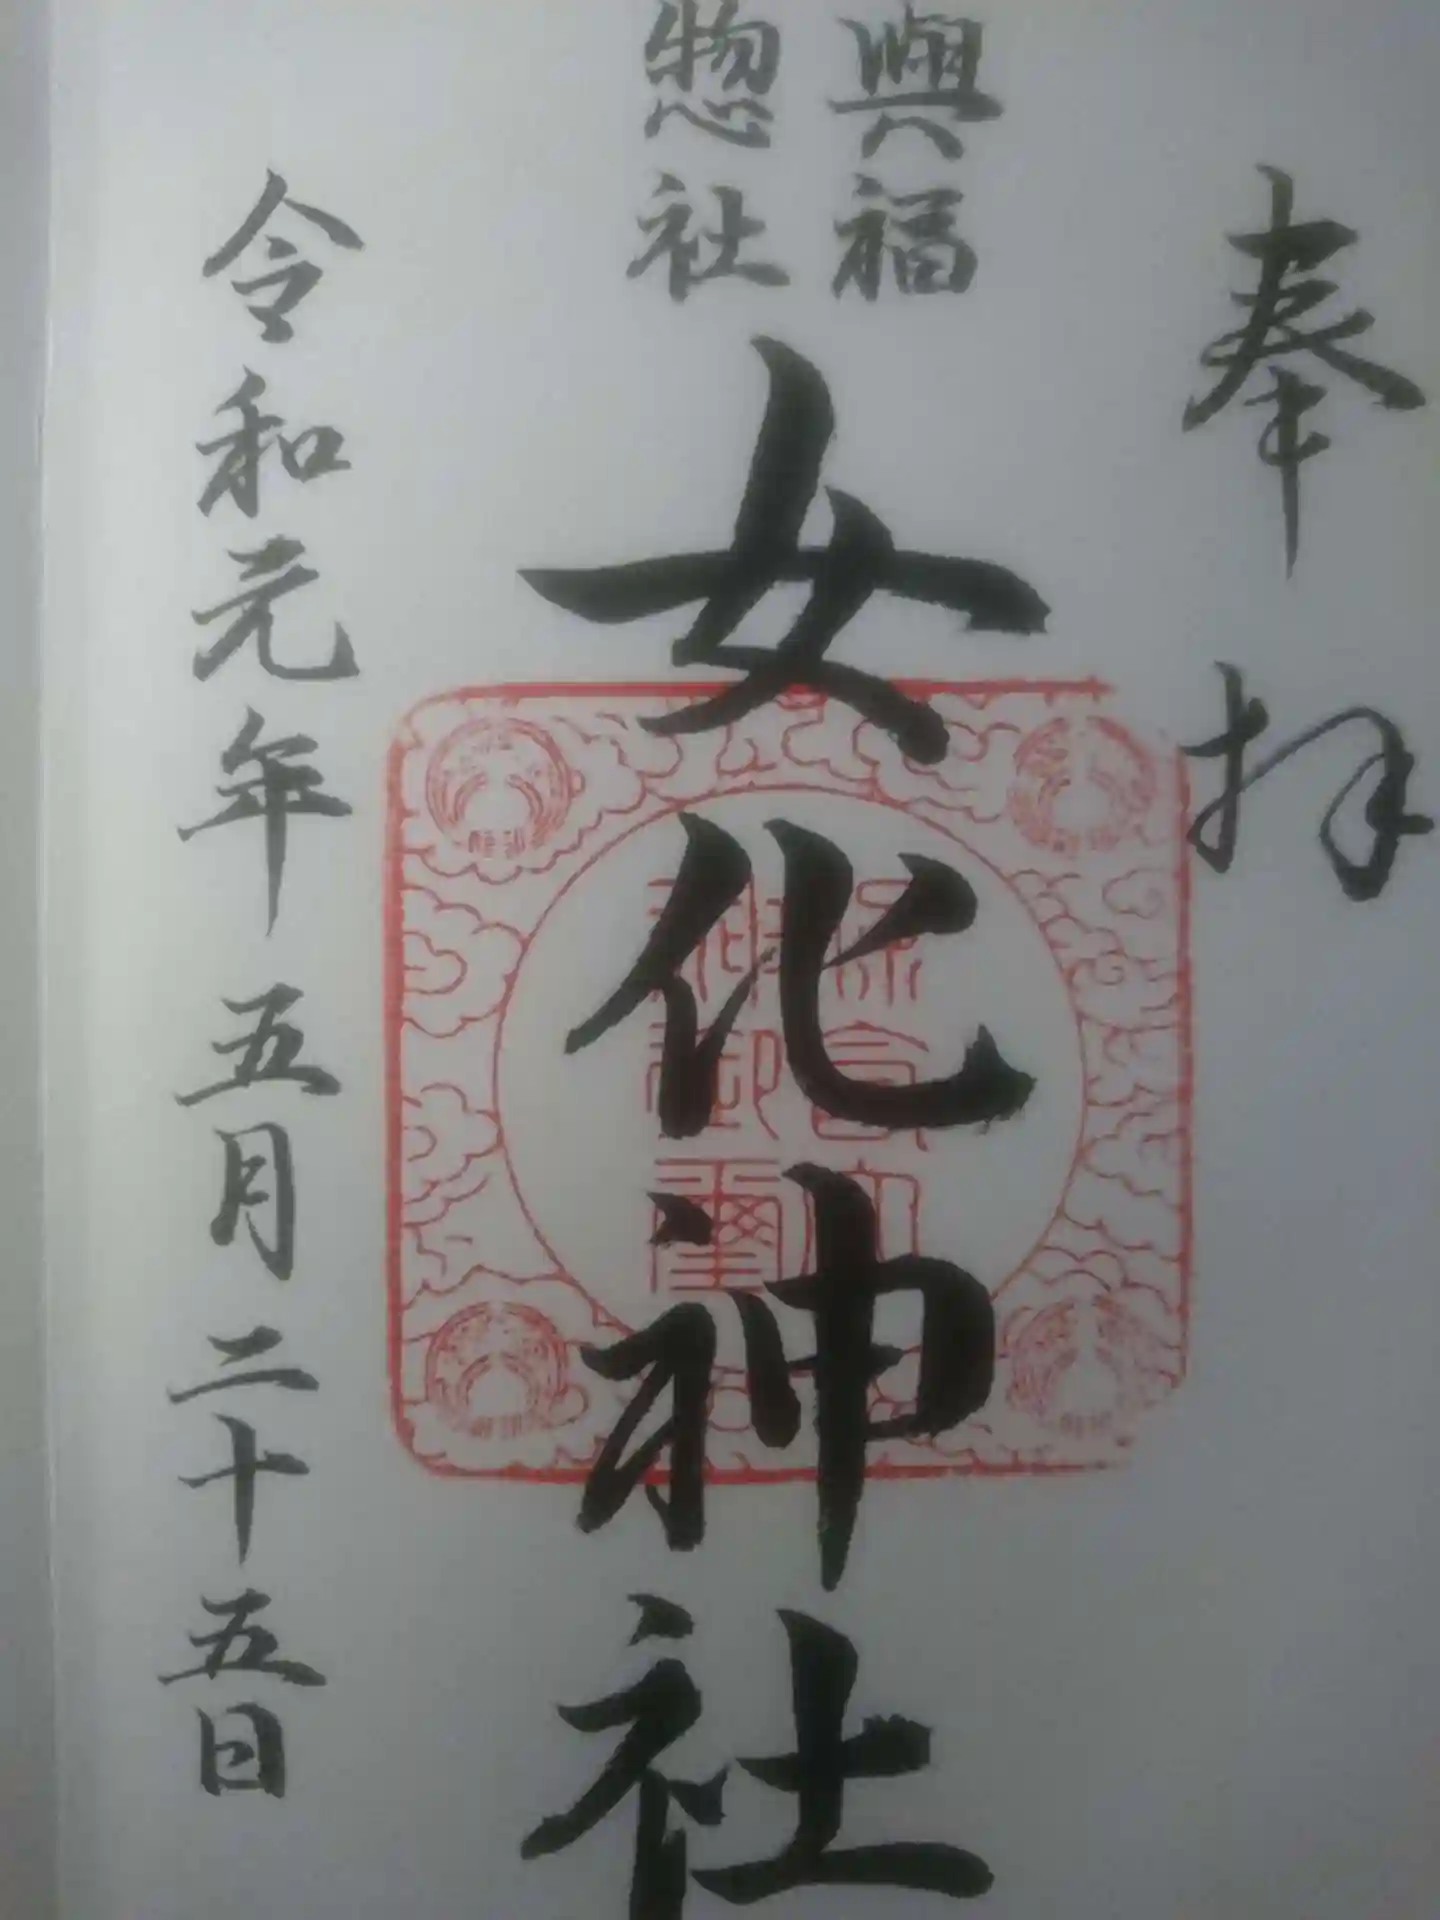 奉拝
興福
惣社
女化神社
令和元年五月二十五日